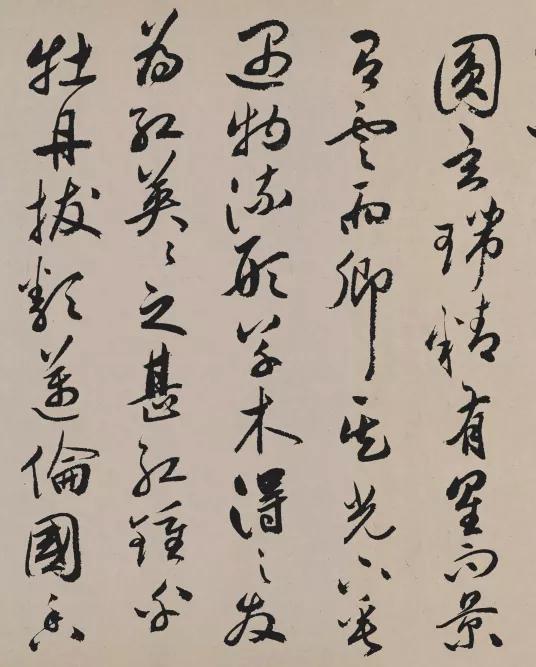 圓玄瑞精有星而景
有雲而卿其光下垂
遇物流形草木得之發
為紅英〻之甚紅鍾乎
牡丹拔類邁倫國香